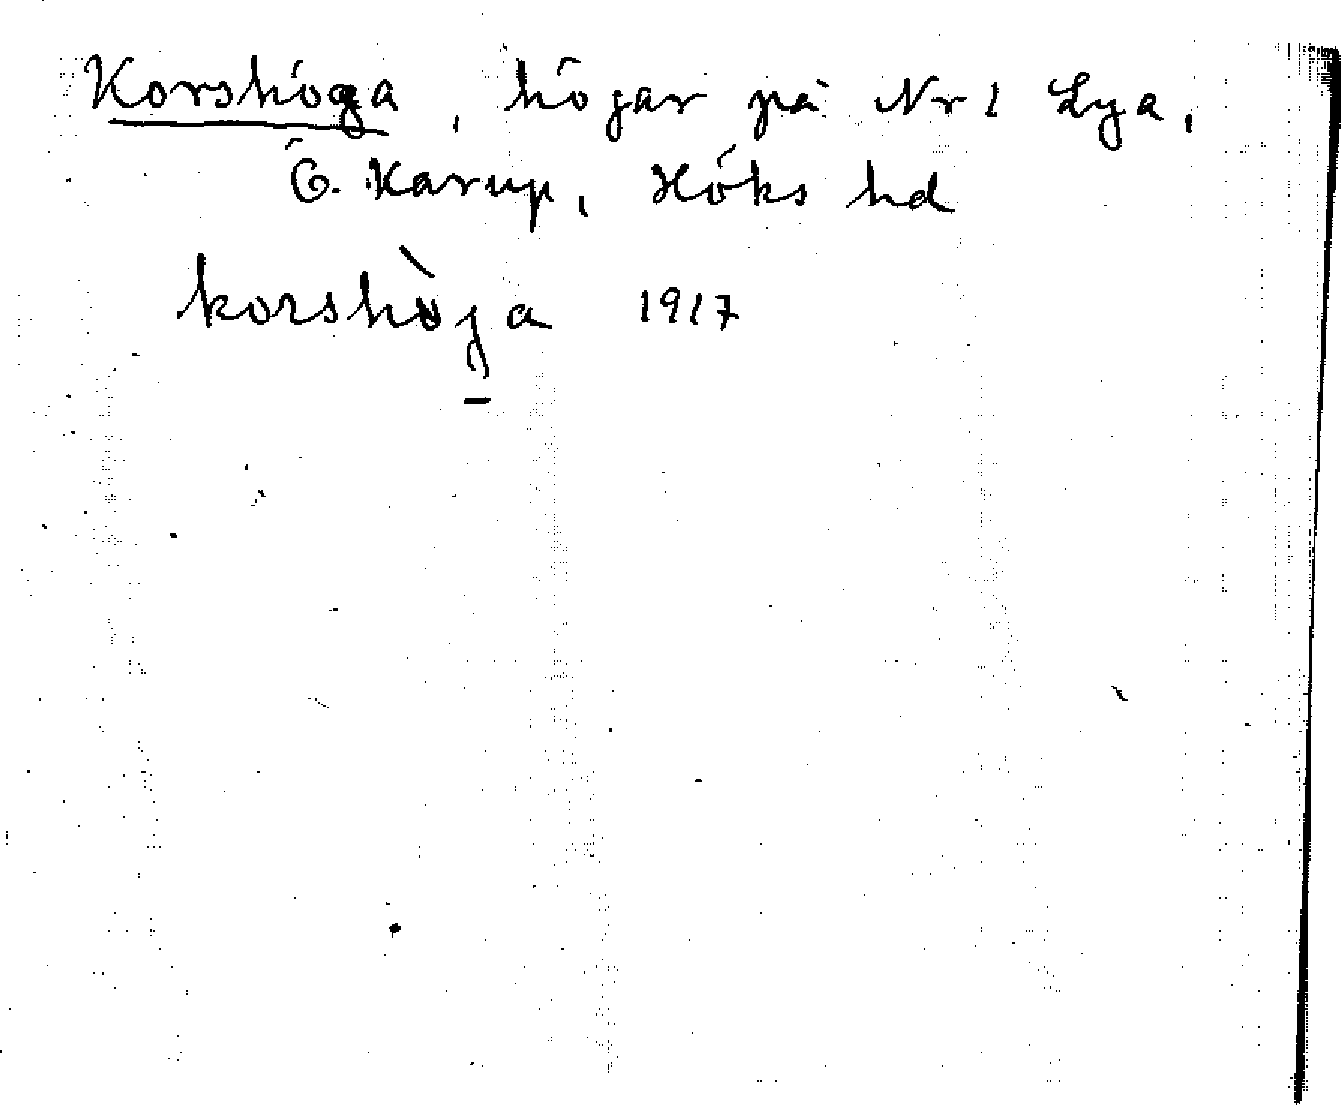 Korshöga, högar på Nr 1 Lya,
Ö. Karup, Höks hd
korshòga 1917